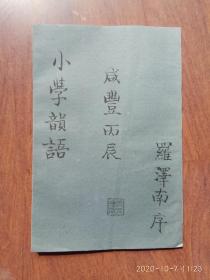 羅澤南序
咸豐丙辰
小學韻語
2020-10-7 11:23